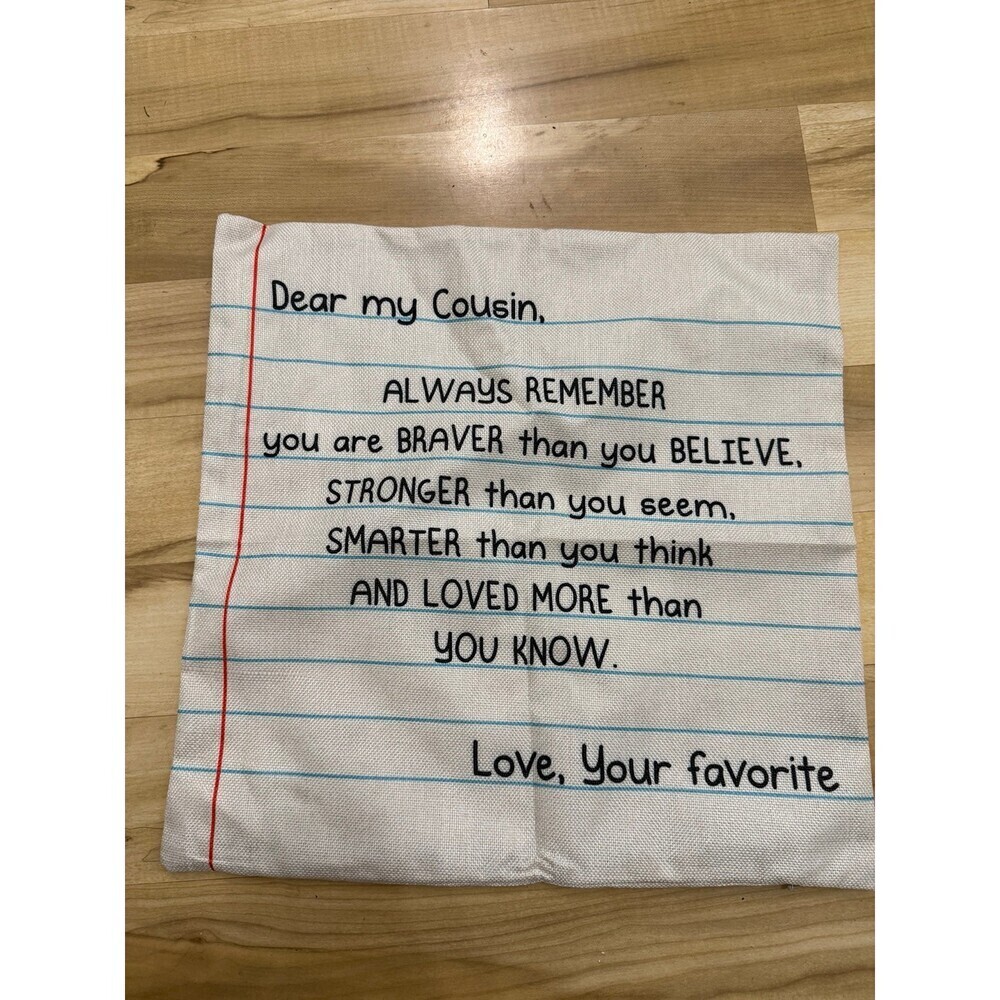 Dear my Cousin,
ALWAYS REMEMBER
you are BRAVER than you BELIEVE,
STRONGER than you seem,
SMARTER than you think
AND LOVED MORE than
YOU KNOW.
Love, Your favorite